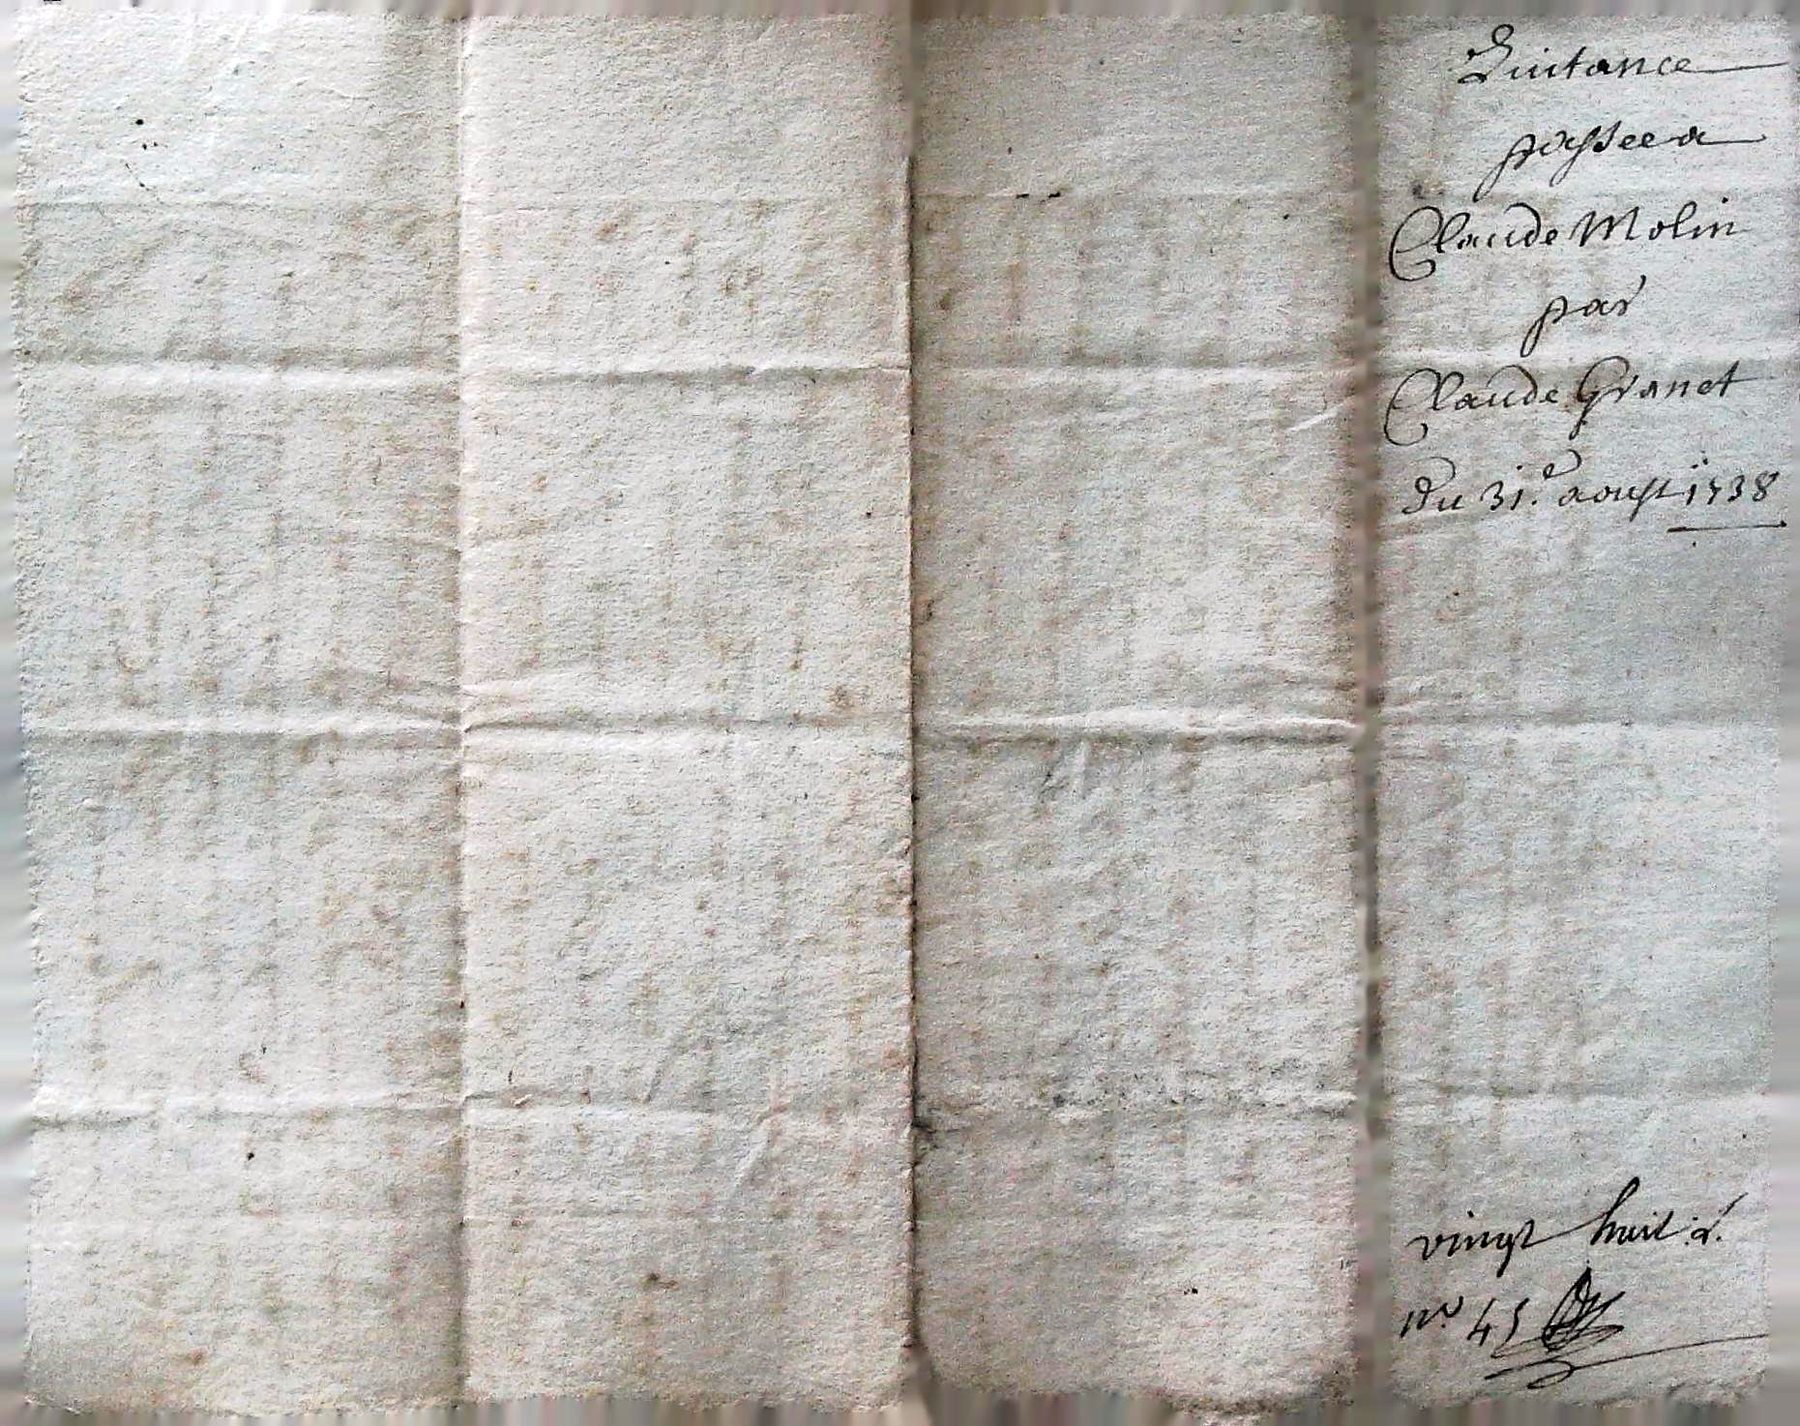 Quitance
passee a
Claude Molin
par
Claude Granet
du 31.e aoust 1738
vingt huit
n.o 45